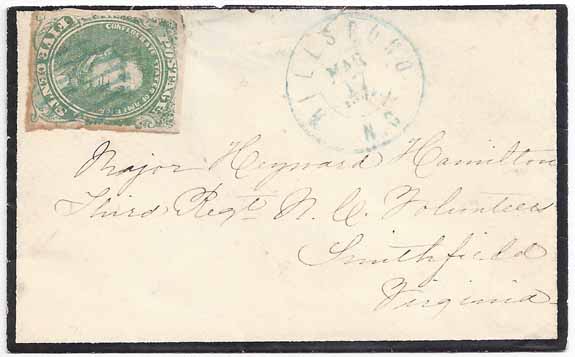 POSTAGE
CONFEDERATE STATES OF AMERICA
FIVE CENTS
HILLSBORO
MAR
17
N.C
Major Heyward Hamilton
Third Regt N. C. Volunteers
Smithfield
Virginia